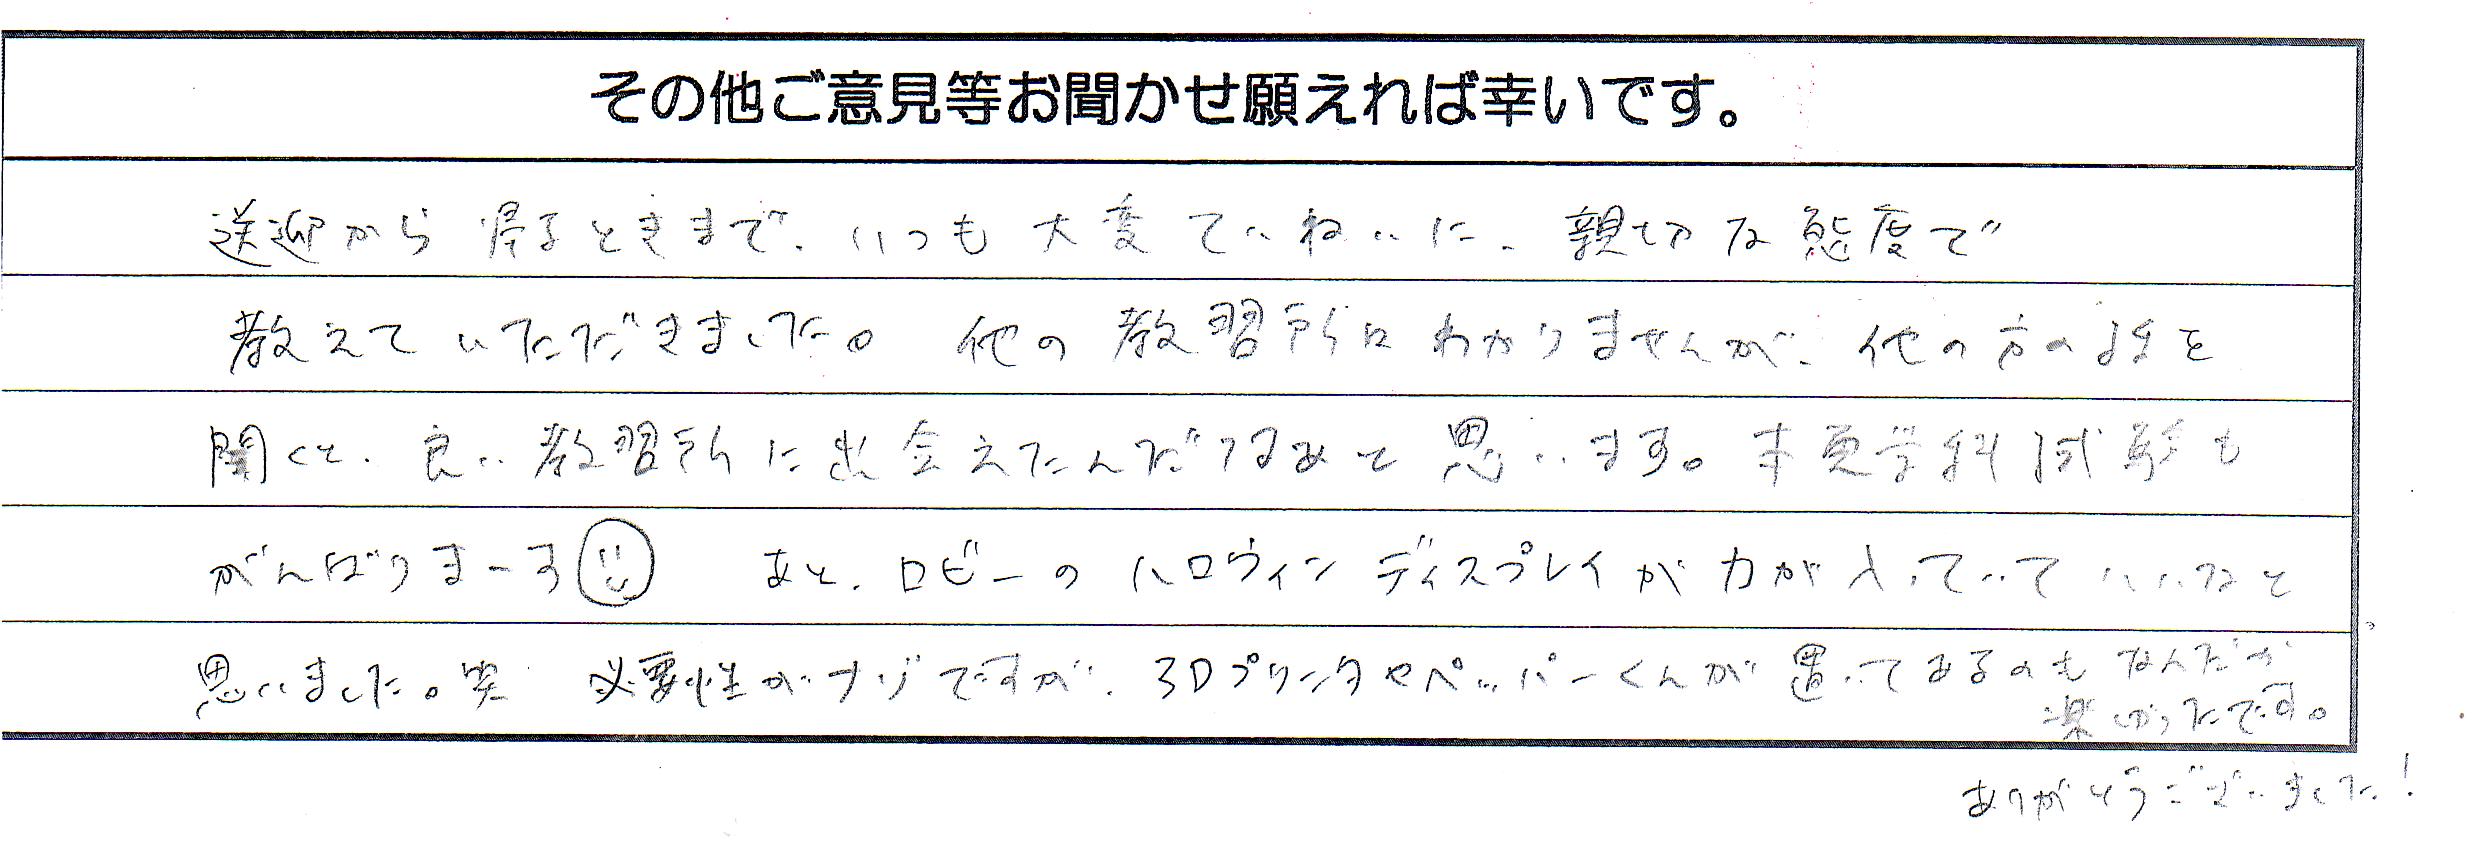 その他ご意見等お聞かせ願えれば幸いです。
送迎から帰るときまで、いつも大変ていねいに、親切な態度で
教えていただきました。他の教習所はわかりませんが、他の方の話を
聞くと、良い教習所に出会えたんだなあと思います。本免学科試験も
がんばりまーす あと、ロビーのハロウィンディスプレイが力が入っていていいなと
思いました。笑 必要性がナゾですが、3Dプリンタやペッパーくんが置いてあるのもなんだか
楽しかったです。
ありがとうございました!